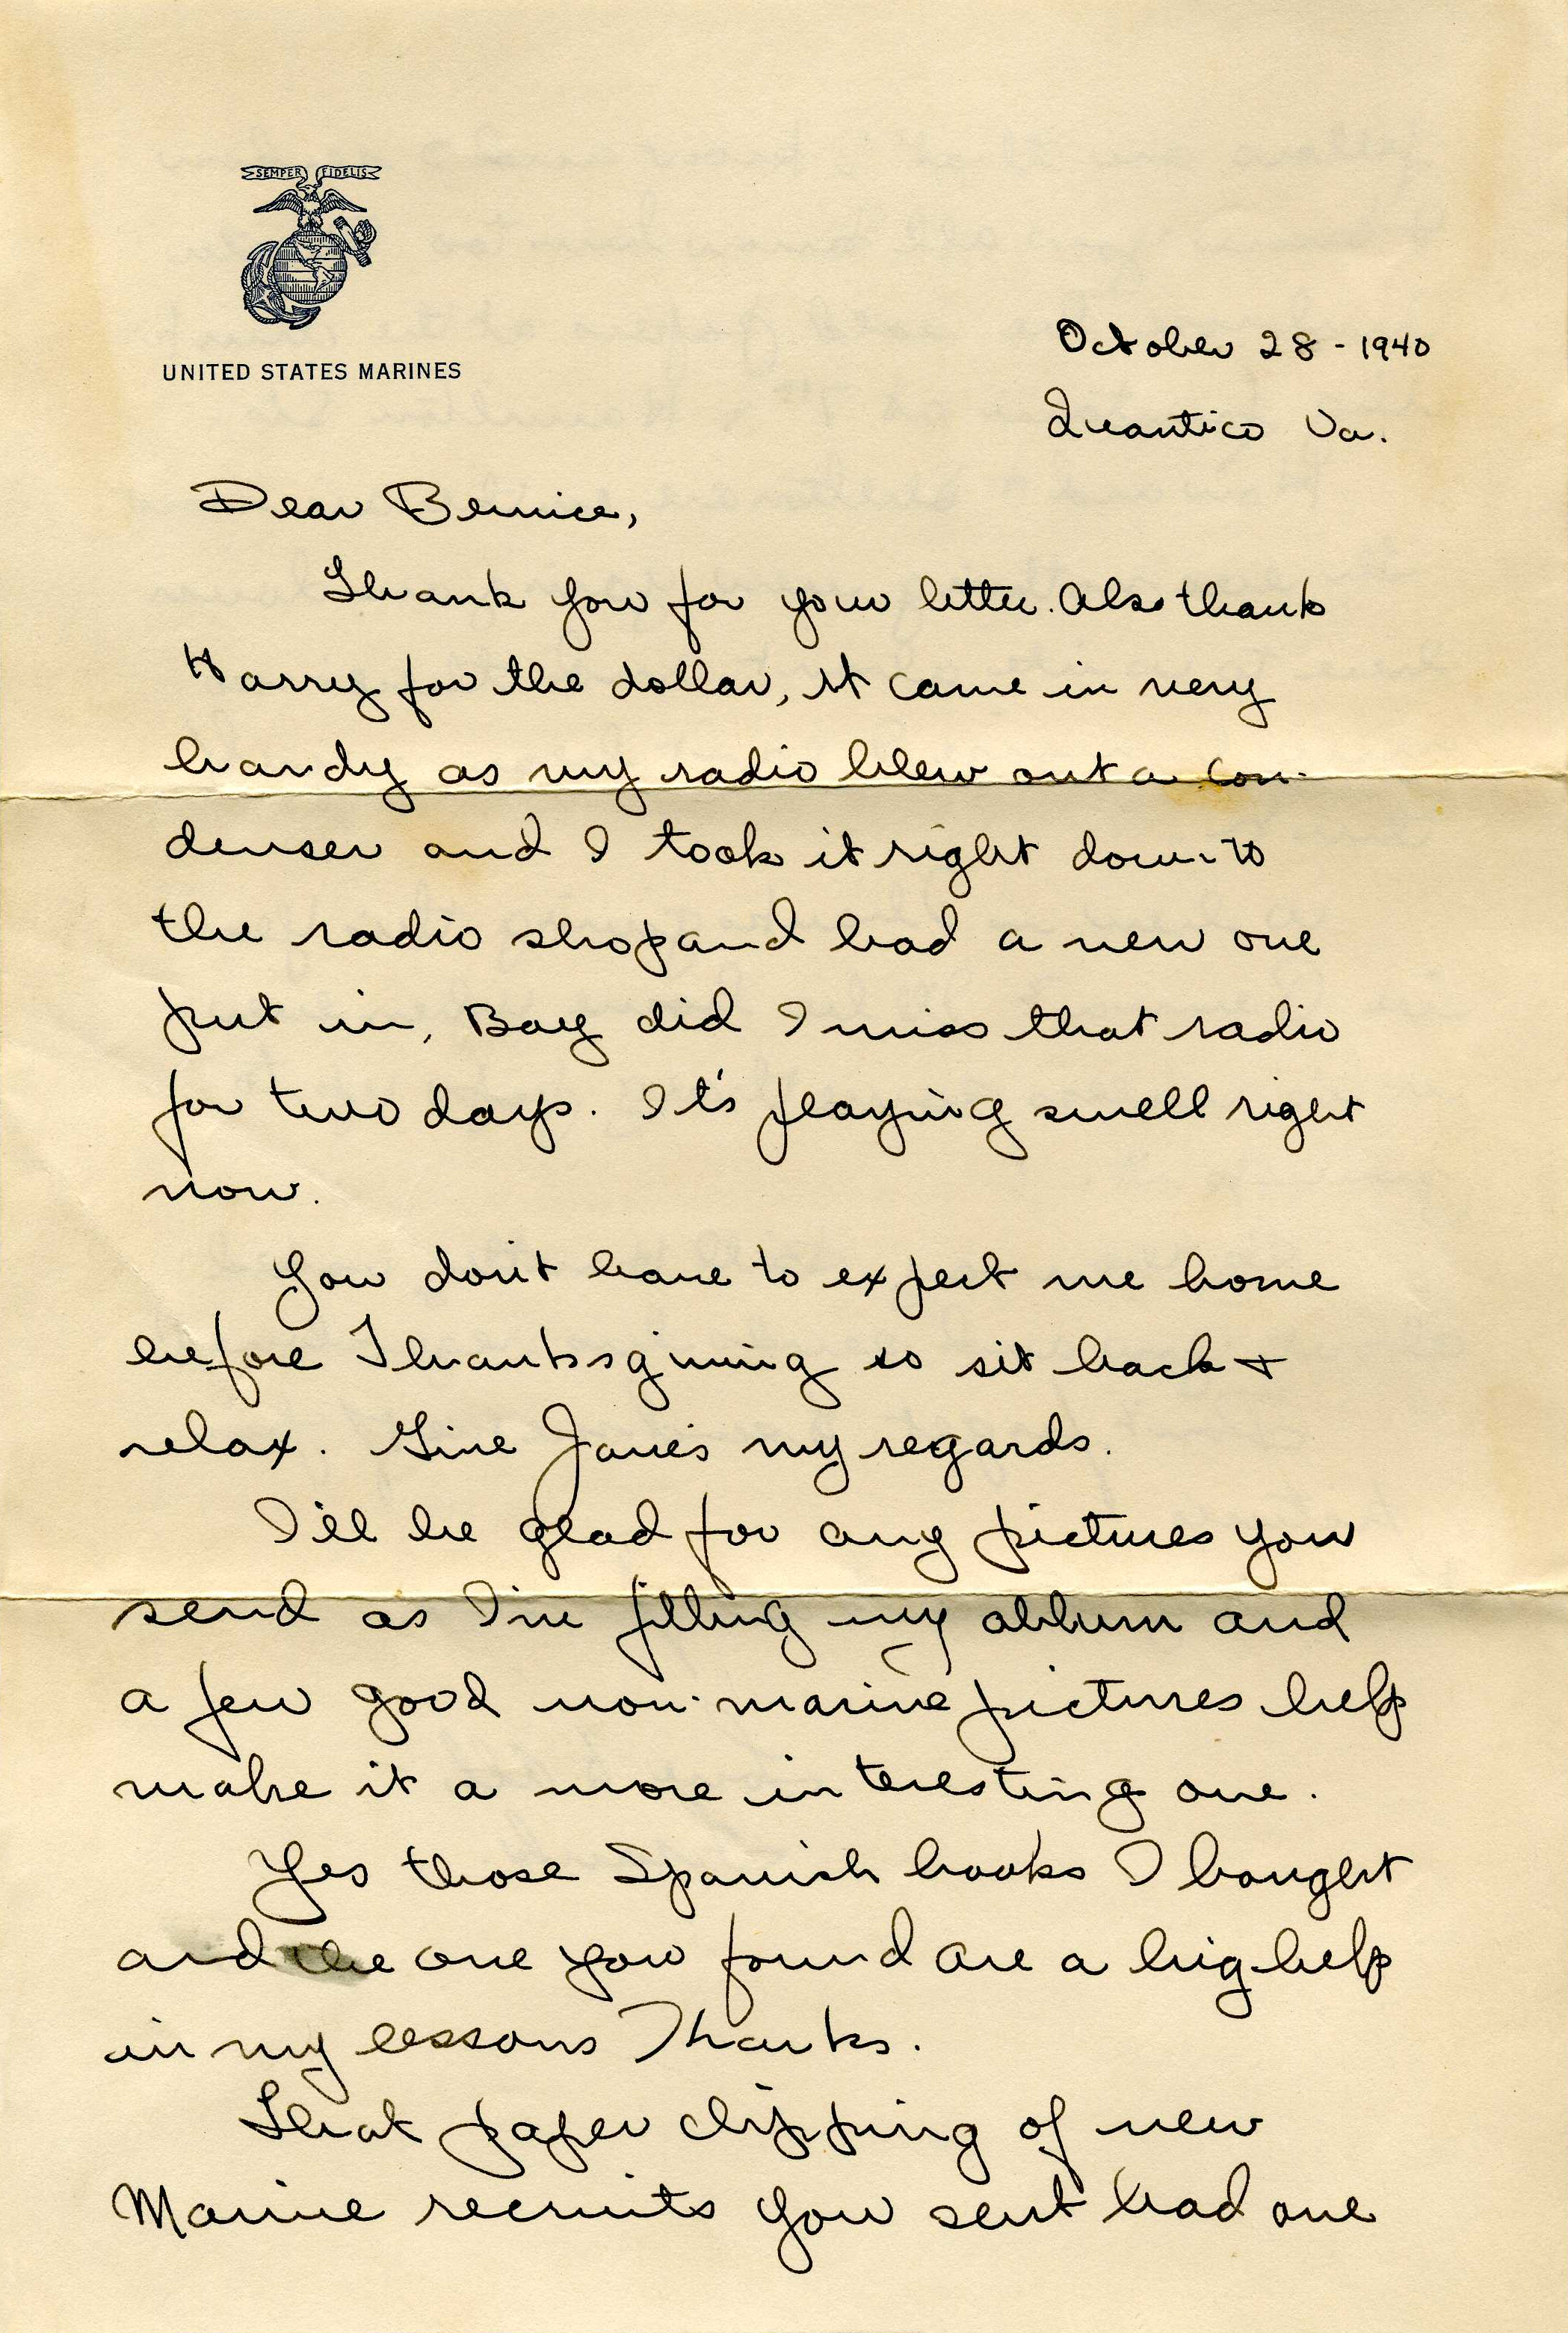 SEMPER FIDELIS
UNITED STATES MARINES
October 28 - 1940
Quantico Va.
Dear Bernice,
Thank you for your letter. Also thank
Harry for the dollar, it came in very
handy as my radio blew out a con-
denser and I took it right down to
the radio shop and had a new one
put in, Boy did I miss that radio
for two days. It's playing swell right
now.
You don't have to expect me home
before Thanksgiving so sit back +
relax. Give Janes my regards.
I'll be glad for any pictures you
send as I'm filling my album and
a few good non-marine pictures help
make it a more interesting one.
Yes those Spanish books I bought
and the one you found are a big help
in my lessons Thanks.
That paper clipping of new
Marine recruits you sent had one